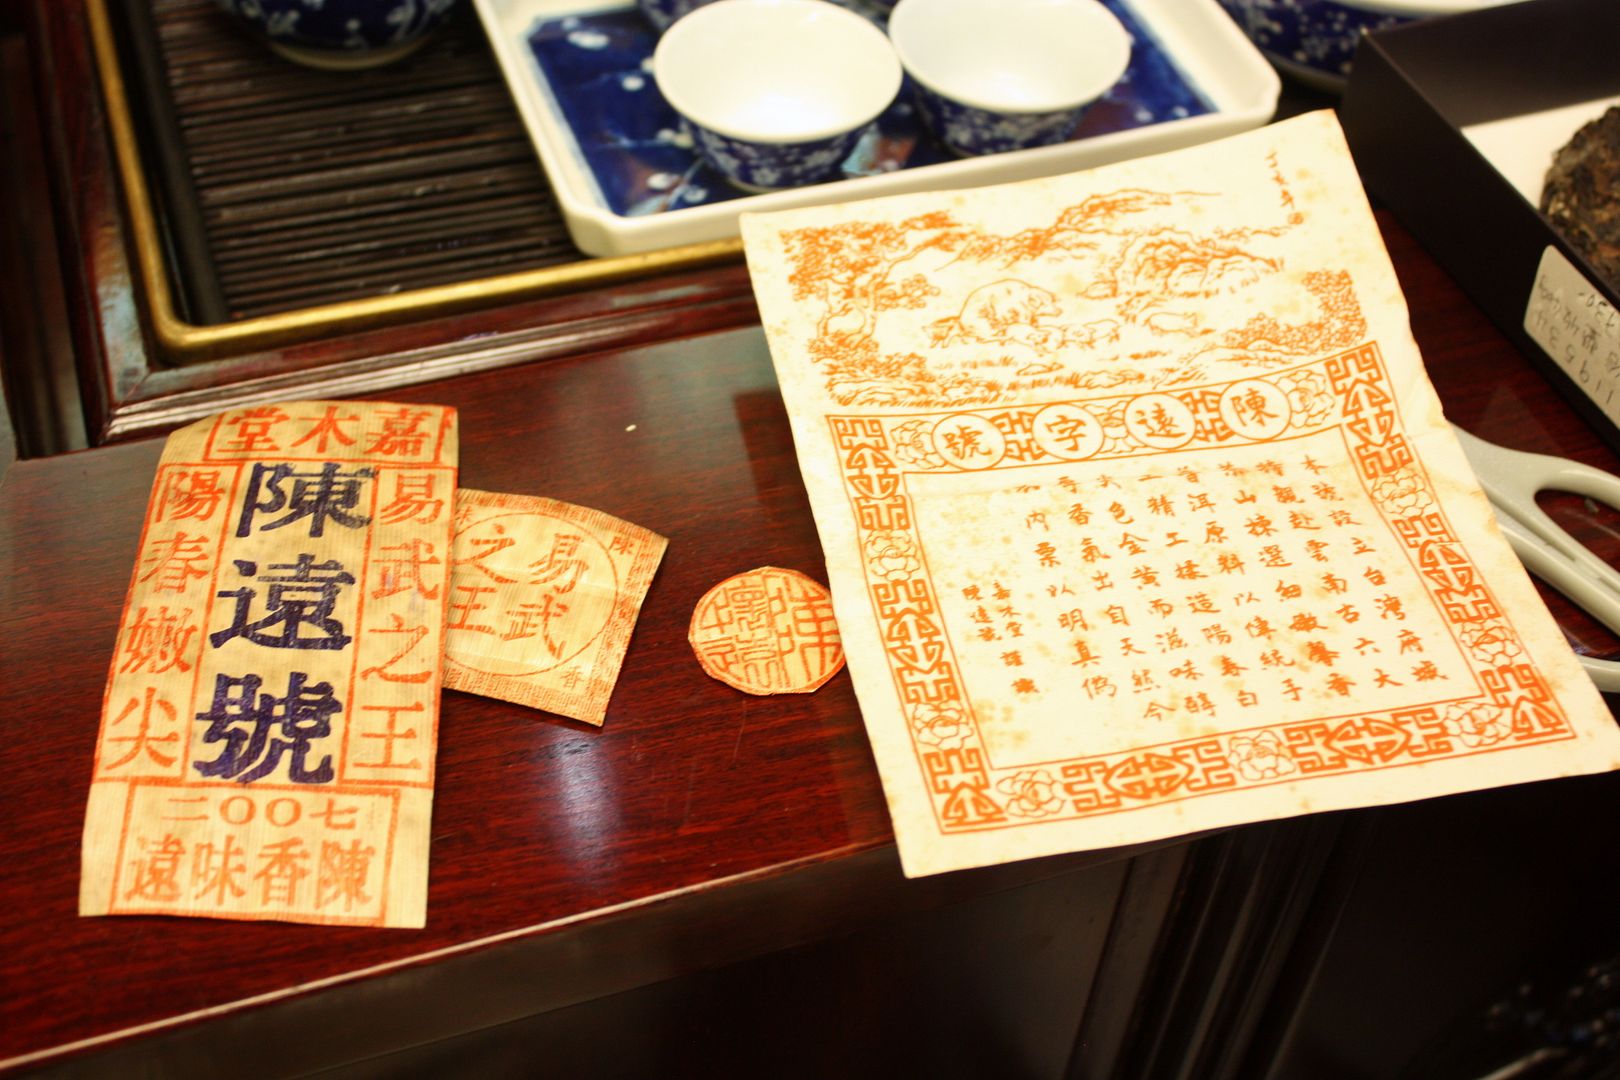 嘉木堂
易武之王
陳遠號
陽春嫩尖
二〇〇七
陳香味遠
易武
之王
丁亥年
陳遠字號
本號設立台灣府城
特親赴雲南古六大
茶山揀選細嫩馨香
普洱原料以傳統手
工精工揉造陽春白
尖色金黃而滋味醇
厚香氣出自天然今
加內票以明真偽
嘉木堂
陳遠號
謹識